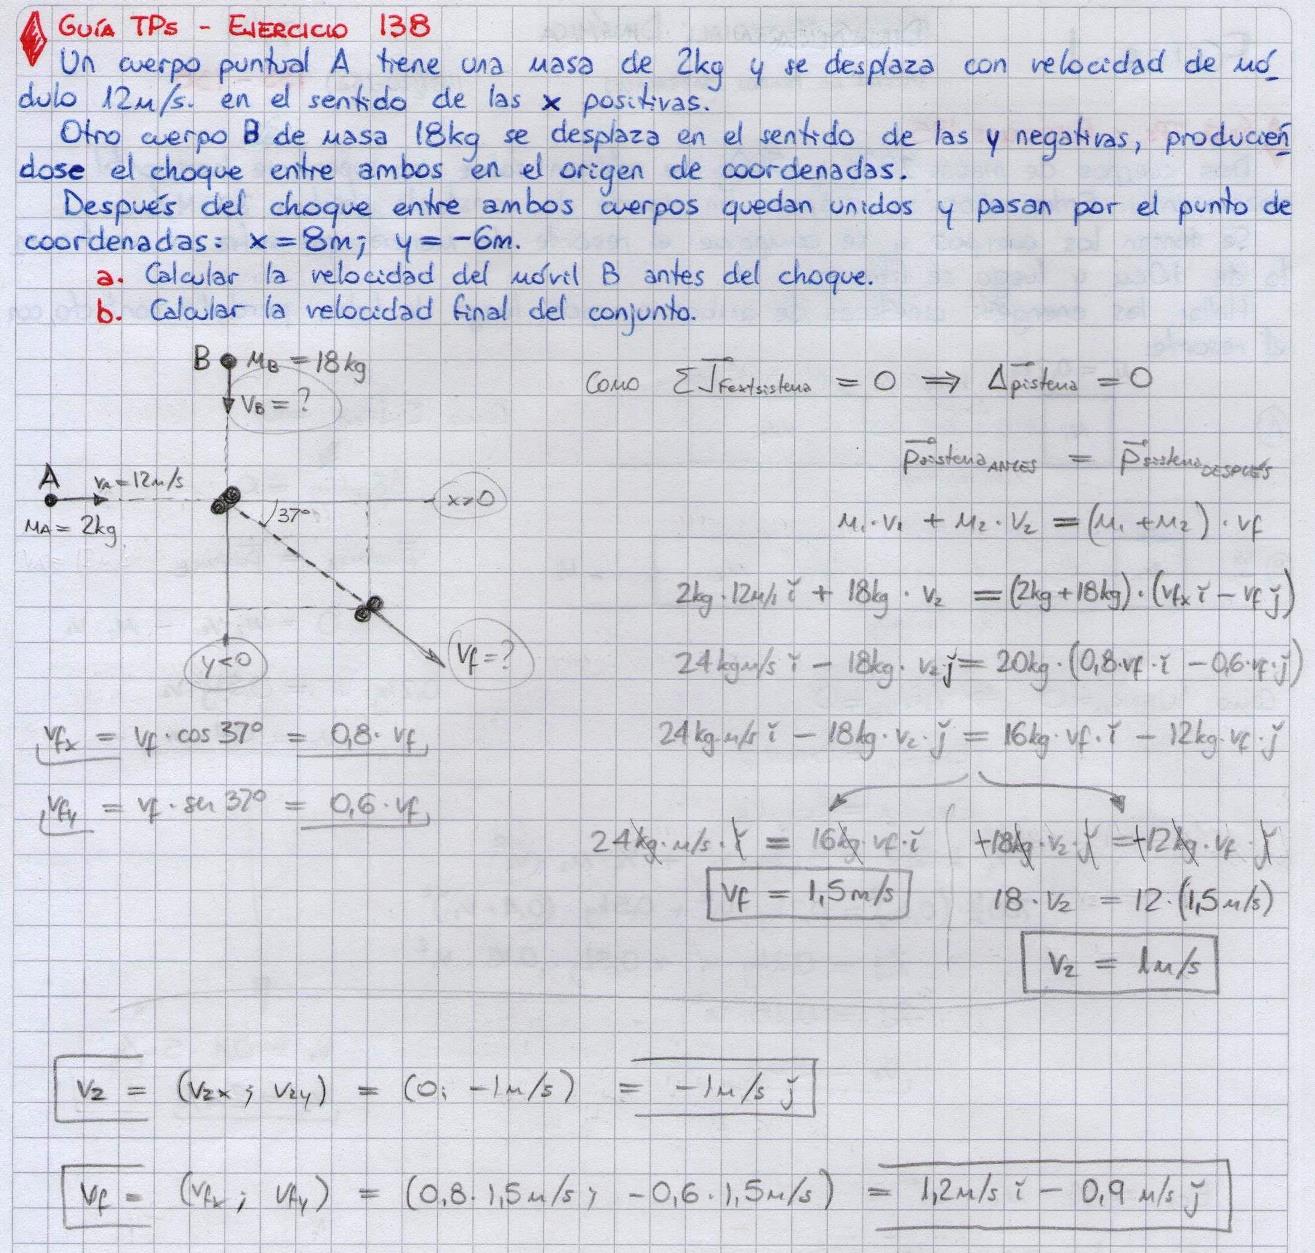 GUÍA TPs - EJERCICIO 138
Un cuerpo puntual A tiene una masa de 2kg y se desplaza con velocidad de mó
dulo 12m/s. en el sentido de las x positivas.
Otro cuerpo B de masa 18kg se desplaza en el sentido de las y negativas, producien
dose el choque entre ambos en el origen de coordenadas.
Después del choque entre ambos cuerpos quedan unidos y pasan por el punto de
coordenadas: x=8m; y=-6m.
a. Calcular la velocidad del móvil B antes del choque.
b. Calcular la velocidad final del conjunto.
B mB = 18kg
vB = ?
Como ΣJFextsistema = 0 ⇒ Δpsistema = 0
psistemaANTES = psistemaDESPUÉS
A vA = 12m/s
mA = 2kg
x>0
37°
m1·v1 + m2·v2 = (m1+m2)·vf
2kg·12m/s ĭ + 18kg·v2 = (2kg+18kg)·(vfx ĭ - vf ǰ)
y<0
vf = ?
24kgm/s ĭ - 18kg·v2·ǰ = 20kg·(0,8·vf·ĭ - 0,6·vf·ǰ)
vfx = vf·cos 37° = 0,8·vf
24kg·m/s ĭ - 18kg·v2·ǰ = 16kg·vf·ĭ - 12kg·vf·ǰ
vfy = vf·sen 37° = 0,6·vf
24kg·m/s·ĭ = 16kg·vf·ĭ
+18kg·v2·ǰ = +12kg·vf·ǰ
vf = 1,5m/s
18·v2 = 12·(1,5m/s)
v2 = 1m/s
v2 = (v2x; v2y) = (0; -1m/s) = -1m/s ǰ
vf = (vfx; vfy) = (0,8·1,5m/s; -0,6·1,5m/s) = 1,2m/s ĭ - 0,9 m/s ǰ